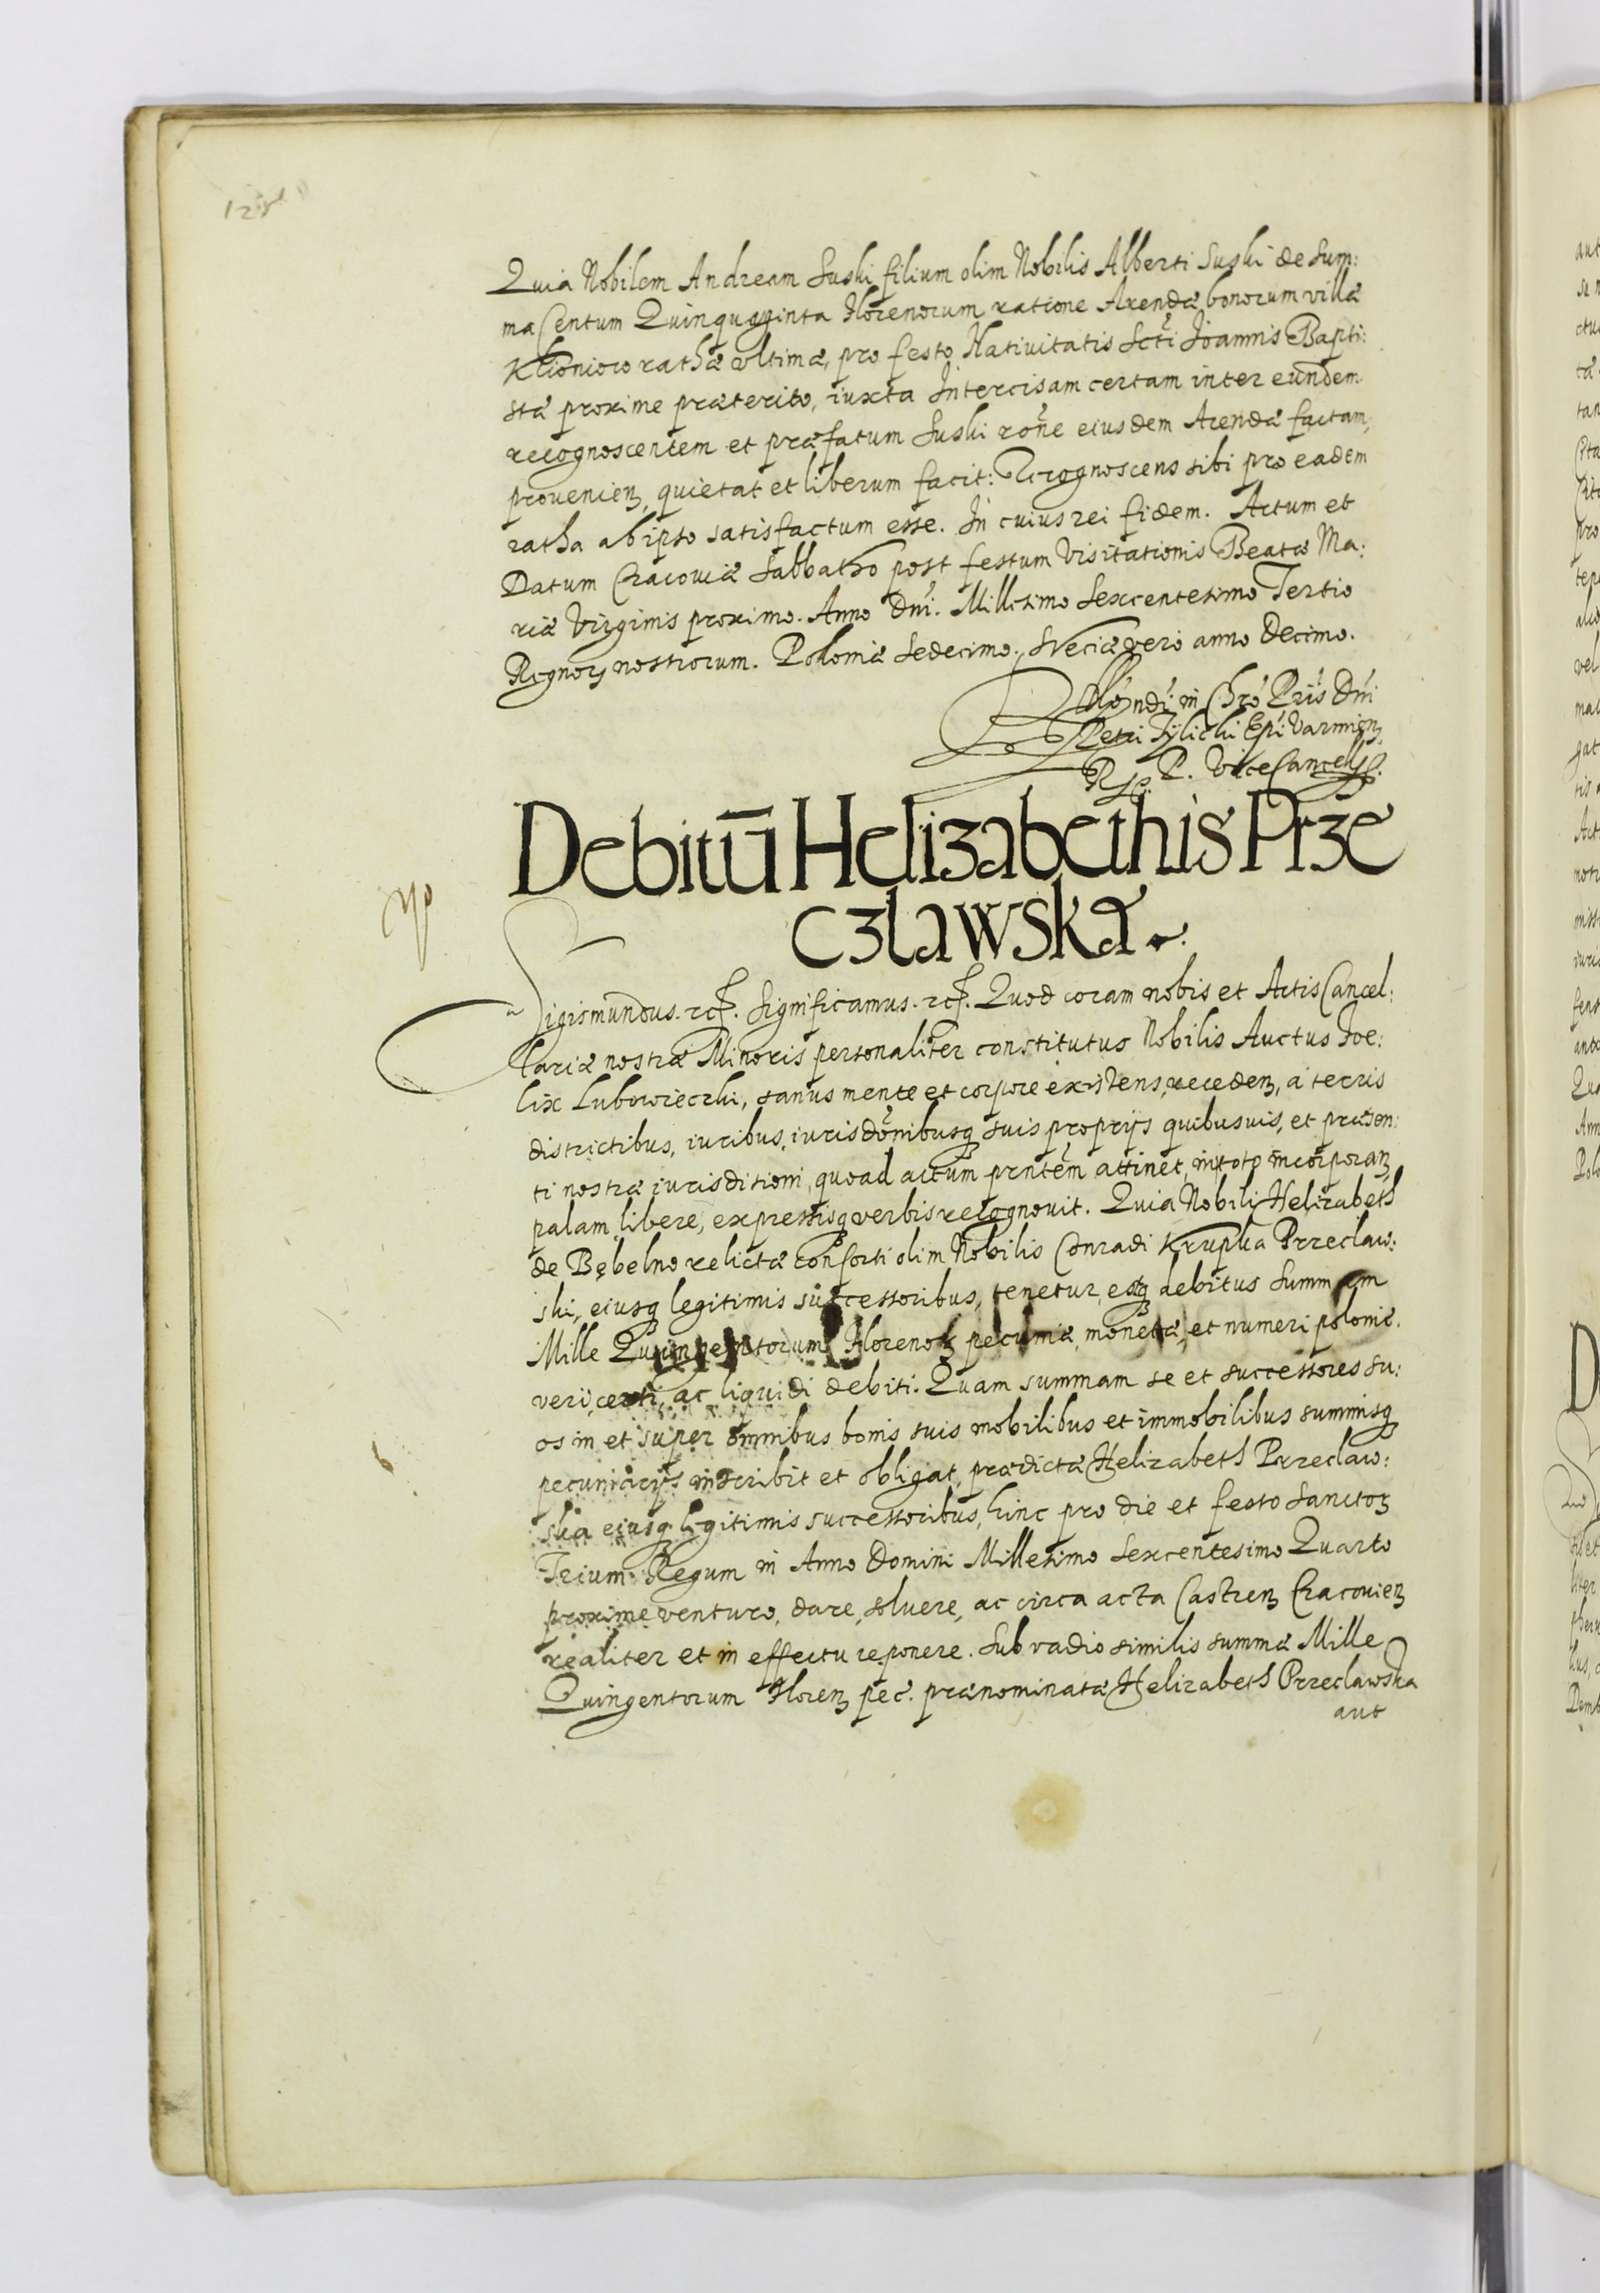 Quia Nobilem Andream Suski filium olim Nobilis Alberti Suski de Sum:
ma Centum Quinquaginta Florenorum ratione Arendæ bonorum villæ
rathæ ultimæ, pro festo Nativitatis Scti Joannis Bapti:
stæ proxime præterito, iuxta Intercisam certam inter eundem
recognoscentem et præfatum Suski rone eiusdem Arendæ factam,
provenien, quietat et liberum facit: Recognoscens sibi pro eadem
ratha ab ipso satisfactum esse. In cuius rei fidem. Actum et
Datum Cracoviæ Sabbatho post festum Visitationis Beatæ Ma:
riæ Virginis proximo. Anno Dni. Millesimo Sexcentesimo Tertio
Regnorȝ nostrorum. Poloniæ Sedecimo. Sveciæ vero anno Decimo.
Rndi in Chro Pris Dni
Petri Tylicki Epi Varmien
R P. ViceCancell
Debitū Helizabethis Prze
czlawska.
Sigismundus. etc. Significamus. etc. Quod coram nobis et Actis Cancel:
lariæ nostræ Minoris personaliter constitutus Nobilis Auctus Foe:
lix Lubowieczki, sanus mente et corpore existens, receden, a terris
districtibus, iuribus, iurisdonibusq suis proprijs quibusuis, et præsen:
ti nostræ iurisditioni, quoad actum prntem attinet, in toto incorporan
palam, libere, expressisq verbis recognovit. Quia Nobili Helizabeth
de Bębelno relictæ consorti olim Nobilis Conradi Krupka Przeclaw:
ski, eiusq legitimis successoribus, tenetur, estq debitus Summam
Mille Quingentorum Florenoȝ pecuniæ, monetæ, et numeri polonic.
veri, certi, ac liquidi debiti. Quam summam se et successores su:
os in et super omnibus bonis suis mobilibus et immobilibus summisq
pecuniarijs inscribit et obligat, prædictæ Helizabeth Przeclaw:
ska eiusq legitimis successoribus, hinc pro die et festo Sanctoȝ
Trium Regum in Anno Domini Millesimo Sexcentesimo Quarto
proxime venturo, dare, solvere, ac circa acta Castren Cracovien
realiter et in effectu reponere. Sub vadio similis summæ Mille
Quingentorum Floren pec. prænominatæ Helizabeth Przeclawska
aut